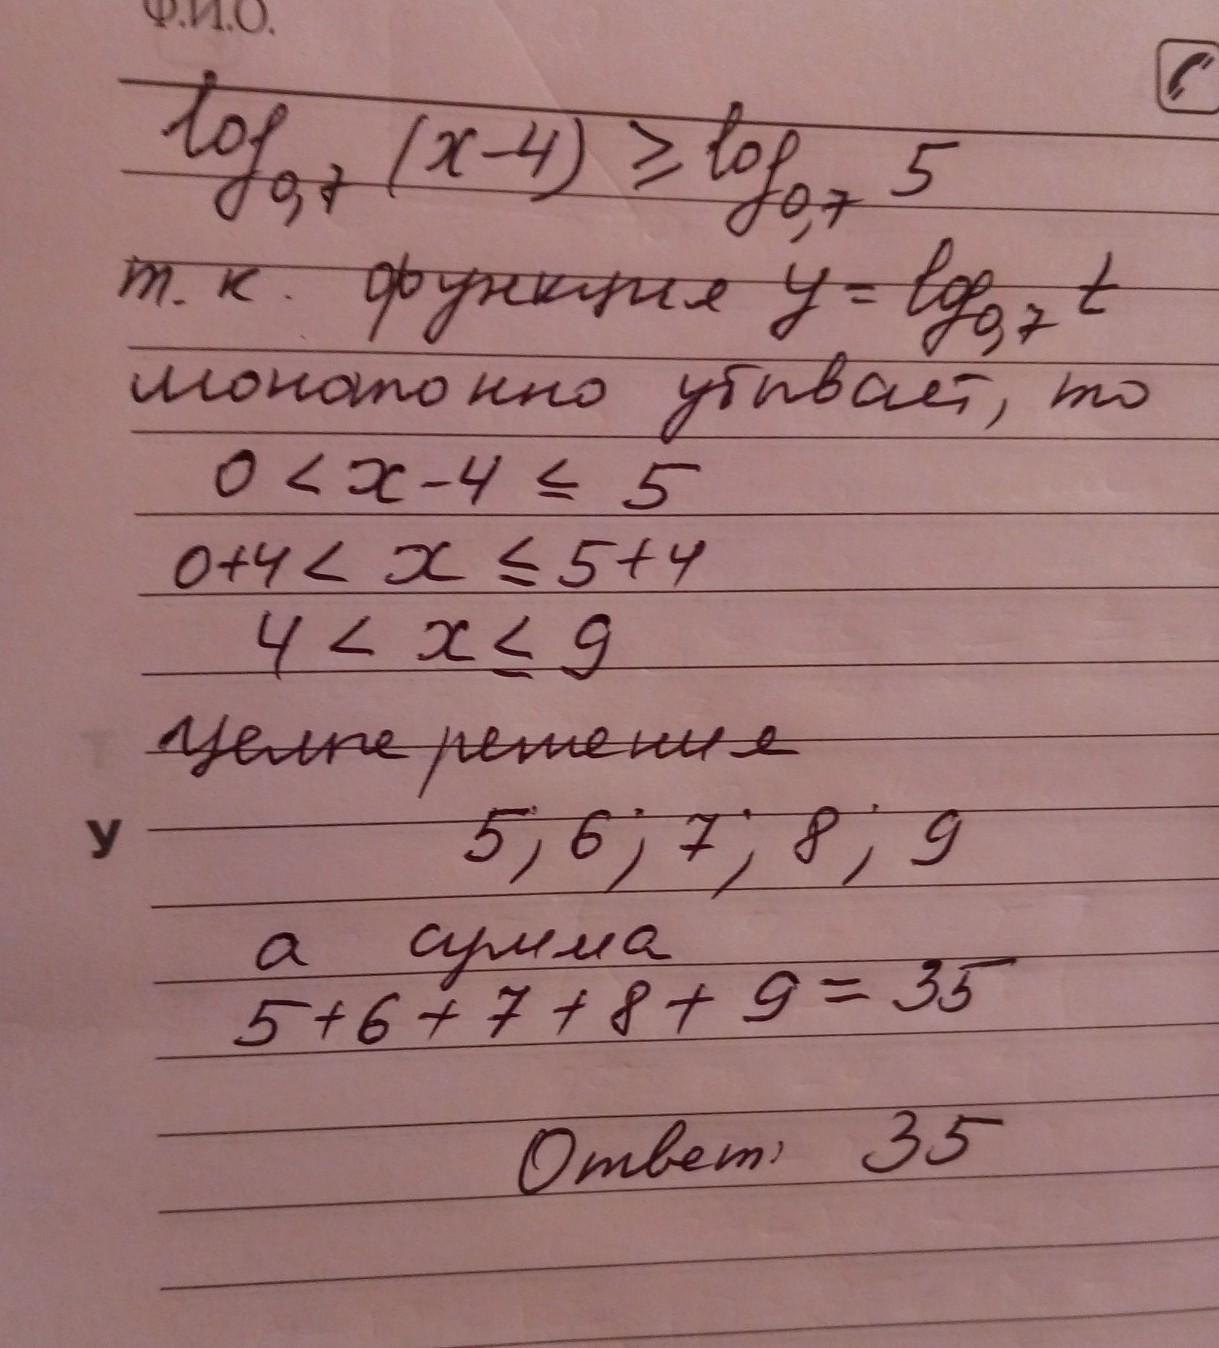 Ф.И.О.
log₀,₇ (x-4) ≥ log₀,₇ 5
т.к. функция y = log₀,₇ t
монотонно убывает, то
0 < x-4 ≤ 5
0+4 < x ≤ 5+4
4 < x ≤ 9
Целые решения
У
5; 6; 7; 8; 9
а сумма
5+6+7+8+9=35
Ответ: 35